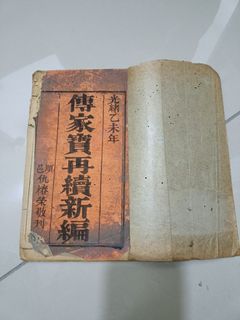 光緒乙未年
傳家寶再續新編